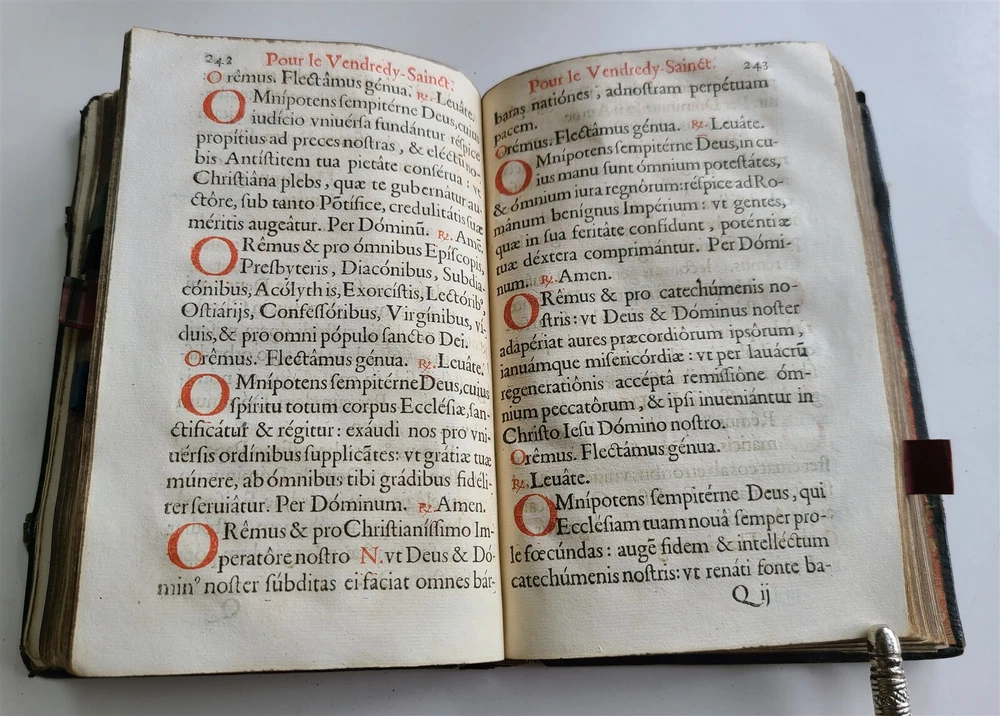 242
Pour le Vendredy-Sainct.
Orêmus. Flectâmus génua. ℟. Leuâte.
OMnípotens sempitérne Deus, cuius
iudício vniuérsa fundántur réspice
propítius ad preces nostras, & eléctū no-
bis Antístitem tua pietâte consérua: vt
Christiâna plebs, quæ te gubernátur au-
ctôre, sub tanto Pōtífice, credulitâtis suæ
méritis augeâtur. Per Dóminū. ℟. Amē.
ORêmus & pro ómnibus Epíscopis,
Presbyteris, Diacónibus, Subdia-
cónibus, Acólythis, Exorcístis, Lectórib⁹,
Ostiárijs, Confessóribus, Virgínibus, ví-
duis, & pro omni pópulo sancto Dei.
Orêmus. Flectâmus génua. ℟. Leuâte.
OMnípotens sempitérne Deus, cuius
spíritu totum corpus Ecclésiæ, san-
ctificátur & régitur: exáudi nos pro vni-
uérsis ordínibus supplicātes: vt grátiæ tuæ
múnere, ab ómnibus tibi grádibus fidéli-
ter seruiâtur. Per Dóminum. ℟. Amen.
ORêmus & pro Christianíssimo Im-
peratôre nostro N. vt Deus & Dó-
min⁹ noster súbditas ei fáciat omnes bár-
Pour le Vendredy-Sainct.
243
baras natiónes: ad nostram perpétuam
pacem.
Orémus. Flectâmus génua. ℟. Leuâte.
OMnípotens sempitérne Deus, in cu-
ius manu sunt ómnium potestátes,
& ómnium iura regnórum: réspice ad Ro-
mánum benígnus Impérium: vt gentes,
quæ in sua feritâte confídunt, poténtiæ
tuæ déxtera comprimántur. Per Dómi-
num. ℟. Amen.
ORêmus & pro catechúmenis no-
stris: vt Deus & Dóminus noster
adapériat aures præcordiórum ipsórum,
ianuámque misericórdiæ: vt per lauácrū
regenerationis accéptâ remissiône óm-
nium peccatôrum, & ipsi inueniántur in
Christo Iesu Dómino nostro.
Orêmus. Flectámus génua.
℟. Leuâte.
OMnípotens sempitérne Deus, qui
Ecclésiam tuam nouâ semper pro-
le fœcúndas: augē fidem & intelléctum
catechúmenis nostris: vt renáti fonte ba-
Q ij